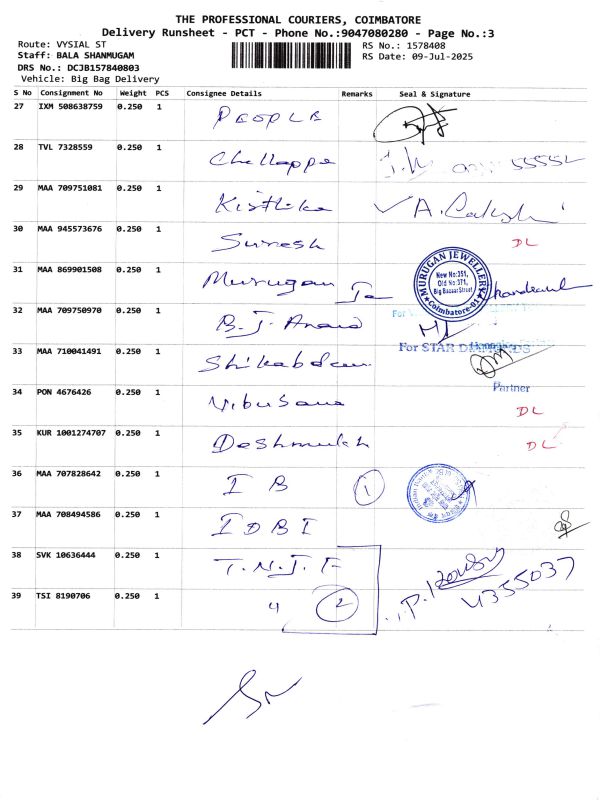 THE PROFESSIONAL COURIERS, COIMBATORE
Delivery Runsheet - PCT - Phone No.:9047080280 - Page No.:3
Route: VYSIAL ST RS No.: 1578408
Staff: BALA SHANMUGAM RS Date: 09-Jul-2025
DRS No.: DCJB157840803
Vehicle: Big Bag Delivery
S No Consignment No Weight PCS Consignee Details Remarks Seal & Signature
27 IXM 508638759 0.250 1 PEOPLE
28 TVL 7328559 0.250 1 Chellappa
29 MAA 709751081 0.250 1
30 MAA 945573676 0.250 1 Suresh DL
31 MAA 869901508 0.250 1 Murugan
MURUGAN JEWELLERY
New No:351,
Old No:371,
Big Bazaar Street
Coimbatore-01
32 MAA 709750970 0.250 1 B.J. Anand
33 MAA 710041491 0.250 1 For STAR DIAMONDS
Partner
34 PON 4676426 0.250 1 DL
35 KUR 1001274707 0.250 1 Deshmukh DL
36 MAA 707828642 0.250 1 I B 1
37 MAA 708494586 0.250 1 IDBI
38 SVK 10636444 0.250 1
39 TSI 8190706 0.250 1 4 2